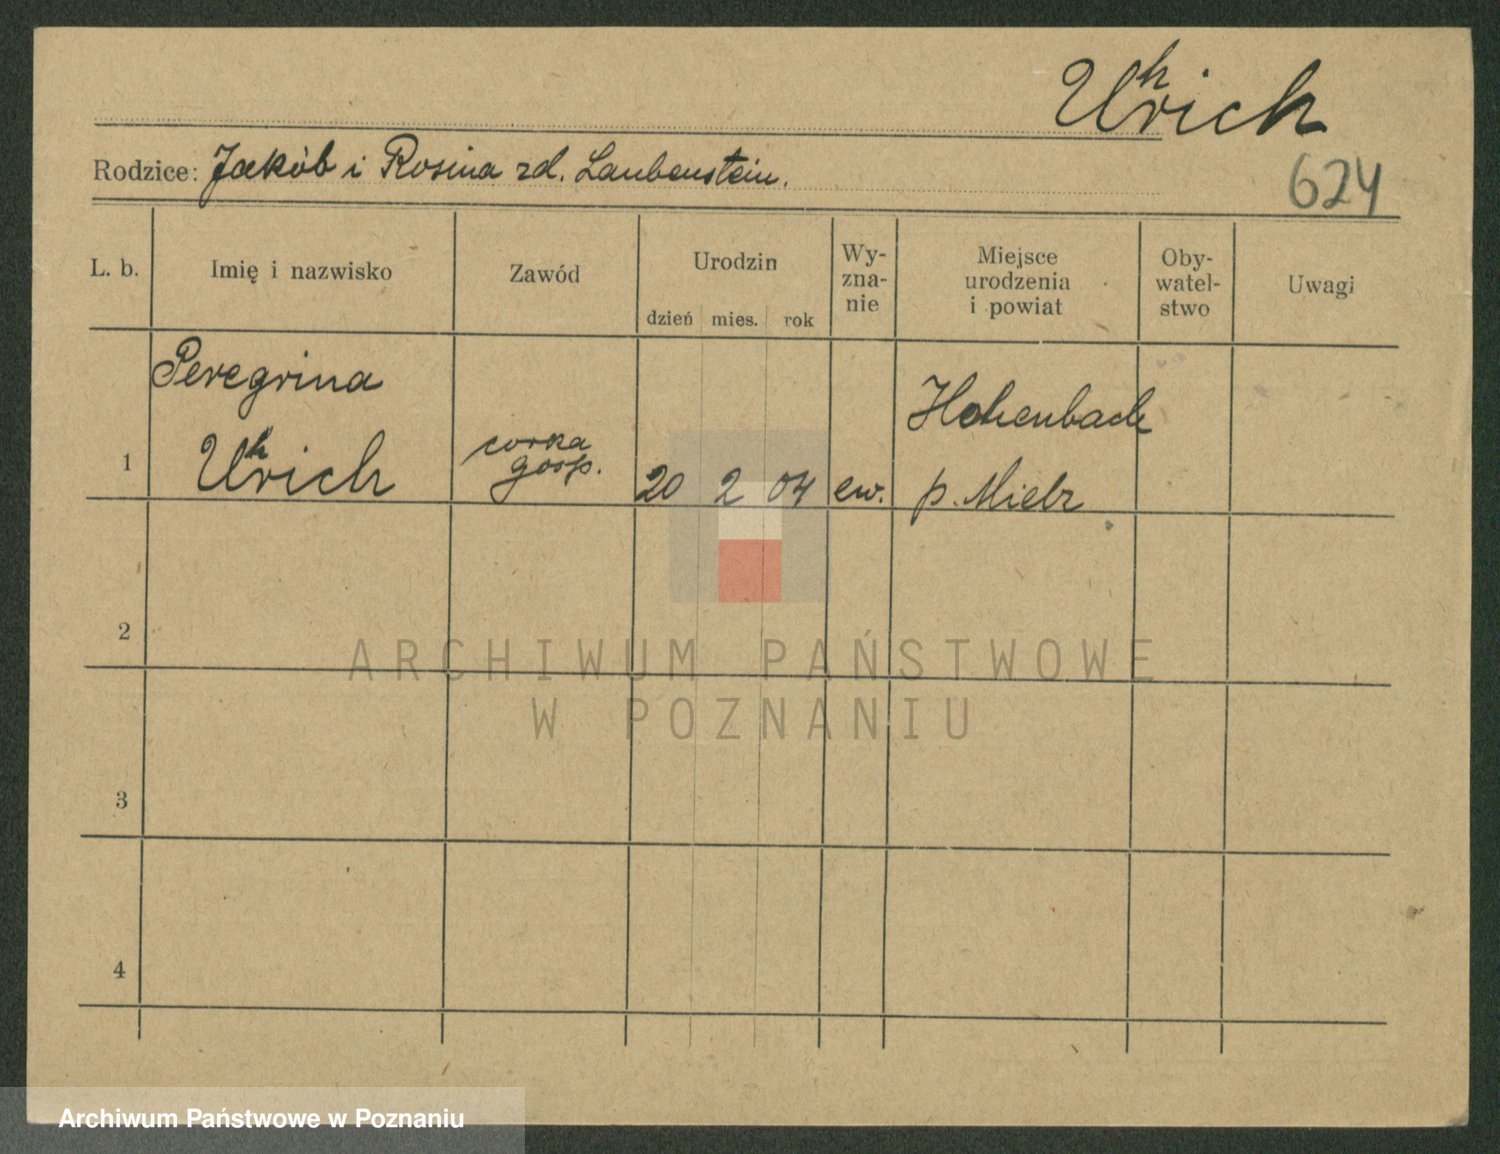 Uhrich
Rodzice: Jakób i Rosina zd. Laubenstein.
624
L. b. Imię i nazwisko Zawód Urodzin dzień mies. rok Wy-zna-nie Miejsce urodzenia i powiat Oby-watel-stwo Uwagi
Peregrina
Hohenbach
1 Uhrich corka gosp. 20 2 04 ew. p. Mielz
2
3
4
ARCHIWUM PAŃSTWOWE
W POZNANIU
Archiwum Państwowe w Poznaniu